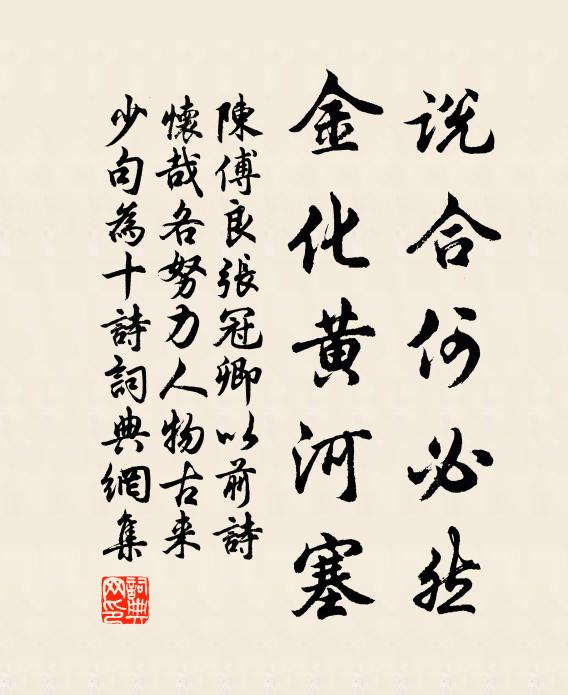 说合何必然
金化黄河塞
陳傅良張冠卿以前詩
懷哉各努力人物古来
少句為十詩詞典網集
詞典
网印